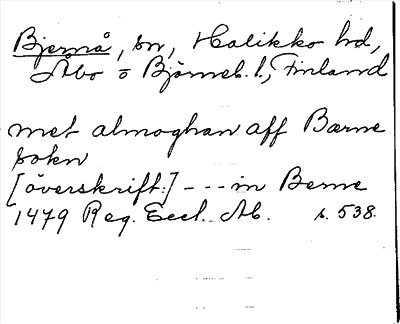 Bjernå, sn, Halikko hd,
Åbo o Björneb. l., Finland
met almoghan aff Bærne
sokn
[överskrift:] --- in Berne
1479 Reg. Eccl. Ab. s. 538.